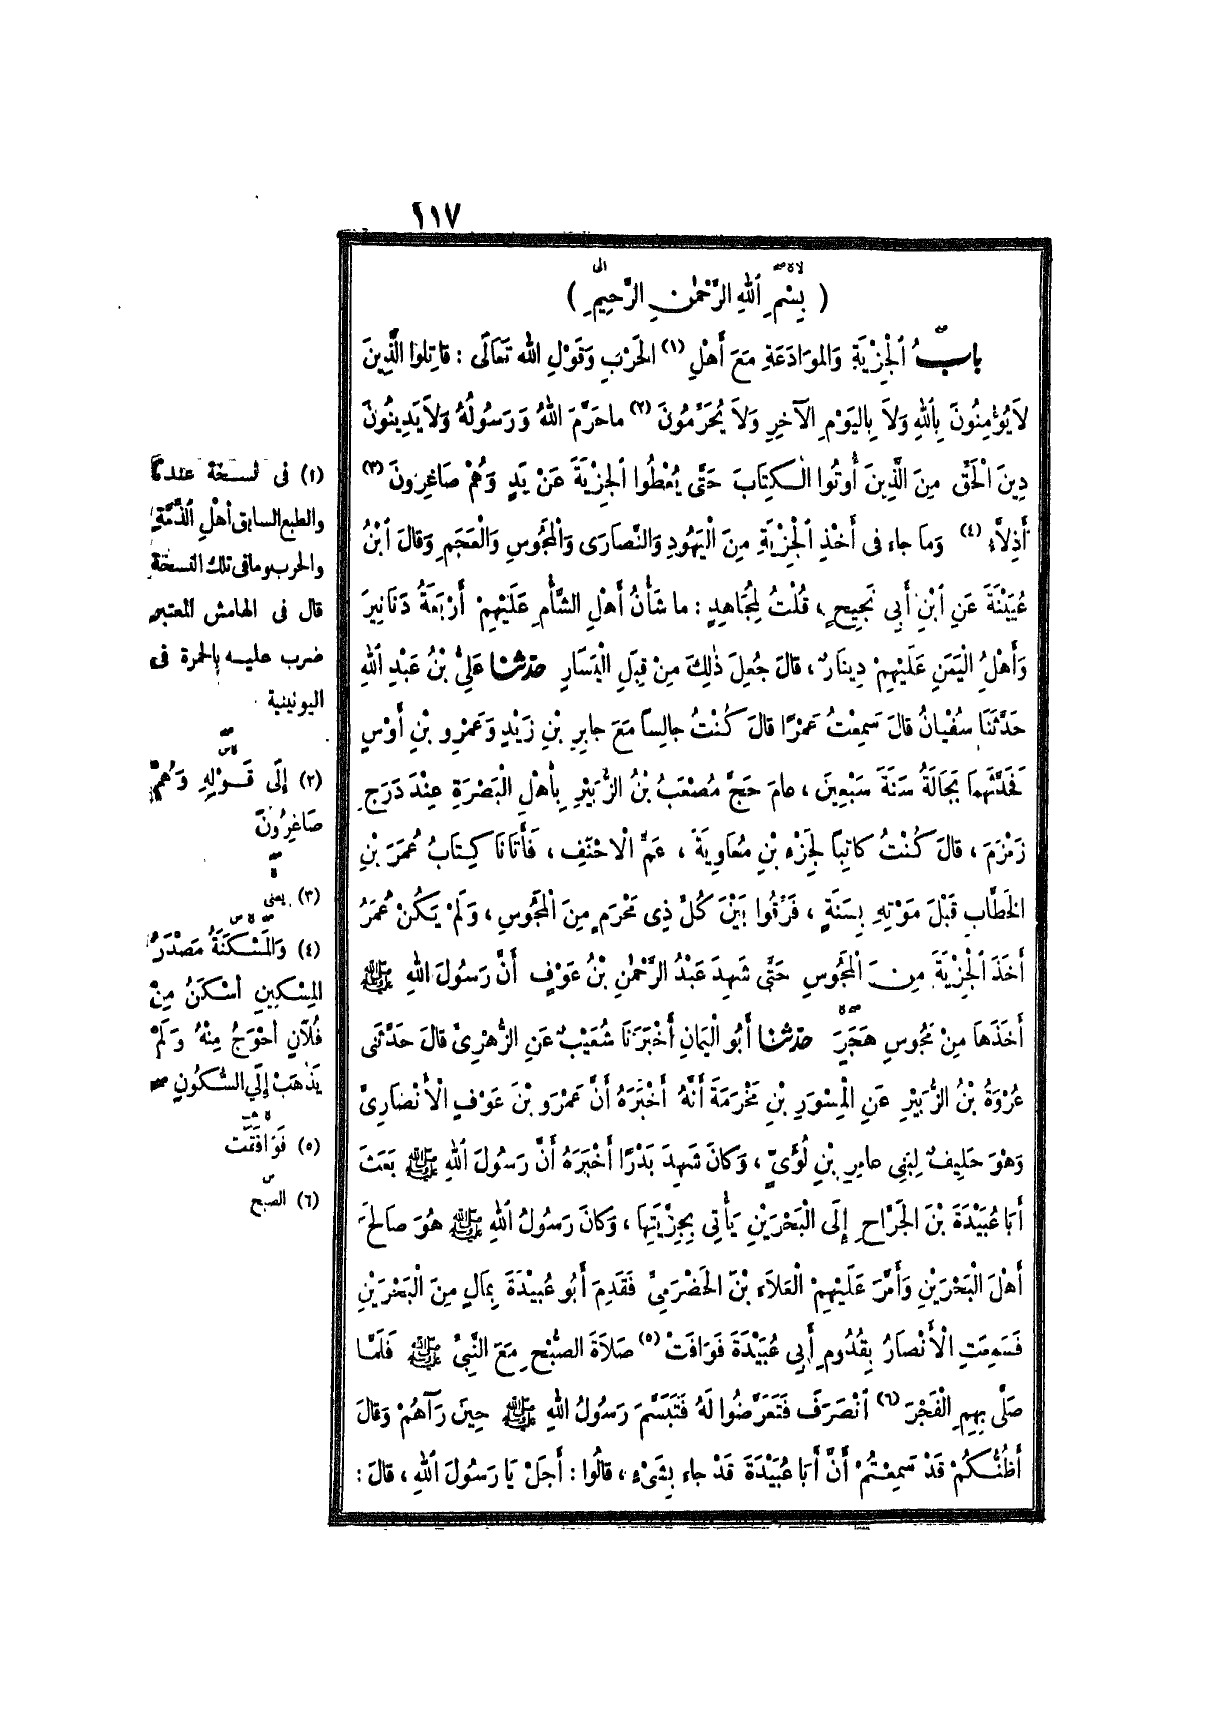 ١١٧
لاه صـ إلى
( بِسْمِ ٱللهِ الرَّحْمٰنِ الرَّحِيمِ )
بابُ ٱلْجِزْيَةِ وَالمُوَادَعَةِ مَعَ أَهْلِ (١) الحَرْبِ وَقَوْلِ اللهِ تَعَالَى : قاتِلوا الَّذِينَ
لاَ يُؤْمِنُونَ بِٱللهِ وَلاَ بِالْيَوْمِ الآخِرِ وَلاَ يُحَرِّمُونَ (٢) ما حَرَّمَ اللهُ وَرَسُولُهُ وَلاَ يَدِينُونَ
دِينَ الْحَقِّ مِنَ الَّذِينَ أُوتُوا الْكِتَابَ حَتَّى يُعْطُوا الْجِزْيَةَ عَنْ يَدٍ وَهُمْ صَاغِرُونَ (٣)
أَذِلاَّءُ (٤) وَما جاء فى أَخْذِ ٱلْجِزْيَةِ مِنَ الْيَهُودِ وَالنَّصَارَى وَالْمَجُوسِ وَالْعَجَمِ وَقالَ ٱبْنُ
عُيَيْنَةَ عَنِ ٱبْنِ أَبِي نَجِيحٍ ، قُلْتُ لِمُجَاهِدٍ : ما شَأْنُ أَهْلِ الشَّأْمِ عَلَيْهِمْ أَرْبَعَةُ دَنَانِيرَ
وَأَهْلُ الْيَمَنِ عَلَيْهِمْ دِينَارٌ ، قالَ جُعِلَ ذٰلِكَ مِنْ قِبَلِ الْيَسَارِ حدثنا عَلِيُّ بْنُ عَبْدِ اللهِ
حَدَّثَنَا سُفْيَانُ قالَ سَمِعْتُ عَمْرًا قالَ كُنْتُ جالِسًا مَعَ جابِرِ بْنِ زَيْدٍ وَعَمْرِو بْنِ أَوْسٍ
فَحَدَّثَهُمَا بَجَالَةُ سَنَةَ سَبْعِينَ ، عامَ حَجَّ مُصْعَبُ بْنُ الزُّبَيْرِ بِأَهْلِ الْبَصْرَةِ عِنْدَ دَرَجِ
زَمْزَمَ ، قالَ كُنْتُ كاتِبًا لِجَزْءِ بْنِ مُعَاوِيَةَ ، عَمِّ الْاحْنَفِ ، فَأَتَانَا كِتَابُ عُمَرَ بْنِ
الخَطَّابِ قَبْلَ مَوْتِهِ بِسَنَةٍ ، فَرِّقُوا بَيْنَ كُلِّ ذِى مَحْرَمٍ مِنَ الْمَجُوسِ ، وَلَمْ يَكُنْ عُمَرُ
أَخَذَ ٱلْجِزْيَةَ مِنَ الْمَجُوسِ حَتَّى شَهِدَ عَبْدُ الرَّحْمٰنِ بْنُ عَوْفٍ أَنَّ رَسُولَ اللهِ ﷺ
أَخَذَهَا مِنْ مَجُوسِ هَجَرَ حدثنا أَبُو الْيَمَانِ أَخْبَرَنَا شُعَيْبٌ عَنِ الزُّهْرِىِّ قالَ حَدَّثَنِى
عُرْوَةُ بْنُ الزُّبَيْرِ عَنِ الْمِسْوَرِ بْنِ مَخْرَمَةَ أَنَّهُ أَخْبَرَهُ أَنَّ عَمْرَو بْنَ عَوْفٍ الْأَنْصَارِىَّ
وَهْوَ حَلِيفٌ لِبَنِي عامِرِ بْنِ لُؤَيٍّ ، وَكانَ شَهِدَ بَدْرًا أَخْبَرَهُ أَنَّ رَسُولَ اللهِ ﷺ بَعَثَ
أَبَا عُبَيْدَةَ بْنَ الجَرَّاحِ إِلَى الْبَحْرَيْنِ يَأْتِي بِجِزْيَتِهَا ، وَكانَ رَسُولُ اللهِ ﷺ هُوَ صَالَحَ
أَهْلَ الْبَحْرَيْنِ وَأَمَّرَ عَلَيْهِمْ الْعَلاَءَ بْنَ الحَضْرَمِىِّ فَقَدِمَ أَبُو عُبَيْدَةَ بِمَالٍ مِنَ الْبَحْرَيْنِ
فَسَمِعَتِ الْأَنْصَارُ بِقُدُومِ أَبِي عُبَيْدَةَ فَوَافَتْ (٥) صَلاَةَ الصُّبْحِ مَعَ النَّبِيِّ ﷺ فَلَمَّا
صَلَّى بِهِمِ الْفَجْرَ (٦) ٱنْصَرَفَ فَتَعَرَّضُوا لَهُ فَتَبَسَّمَ رَسُولُ اللهِ ﷺ حِينَ رَآهُمْ وَقالَ
أَظُنُّكُمْ قَدْ سَمِعْتُمْ أَنَّ أَبَا عُبَيْدَةَ قَدْ جاء بِشَىْءٍ ، قالُوا : أَجَلْ يَا رَسُولَ اللهِ ، قالَ :
(١) فى نسخة عندنا
والطبع السابق أهْلِ الذِّمَّةِ
والحرب وما فى تلك النسخة
قال فى الهامش المعتبر
ضرب عليه بالحمرة فى
اليونينية
(٢) إِلَى قَوْلِهِ وَهُمْ
صَاغِرُونَ
(٣) يعنى
(٤) وَالمَسْكَنَةُ مَصْدَرُ
الْمِسْكِينِ أَسْكَنُ مِنْ
فُلاَنٍ أَحْوَجُ مِنْهُ وَلَمْ
يَذْهَبْ إِلَى السُّكُونِ
(٥) فَوَافَقَتْ
(٦) الصبح